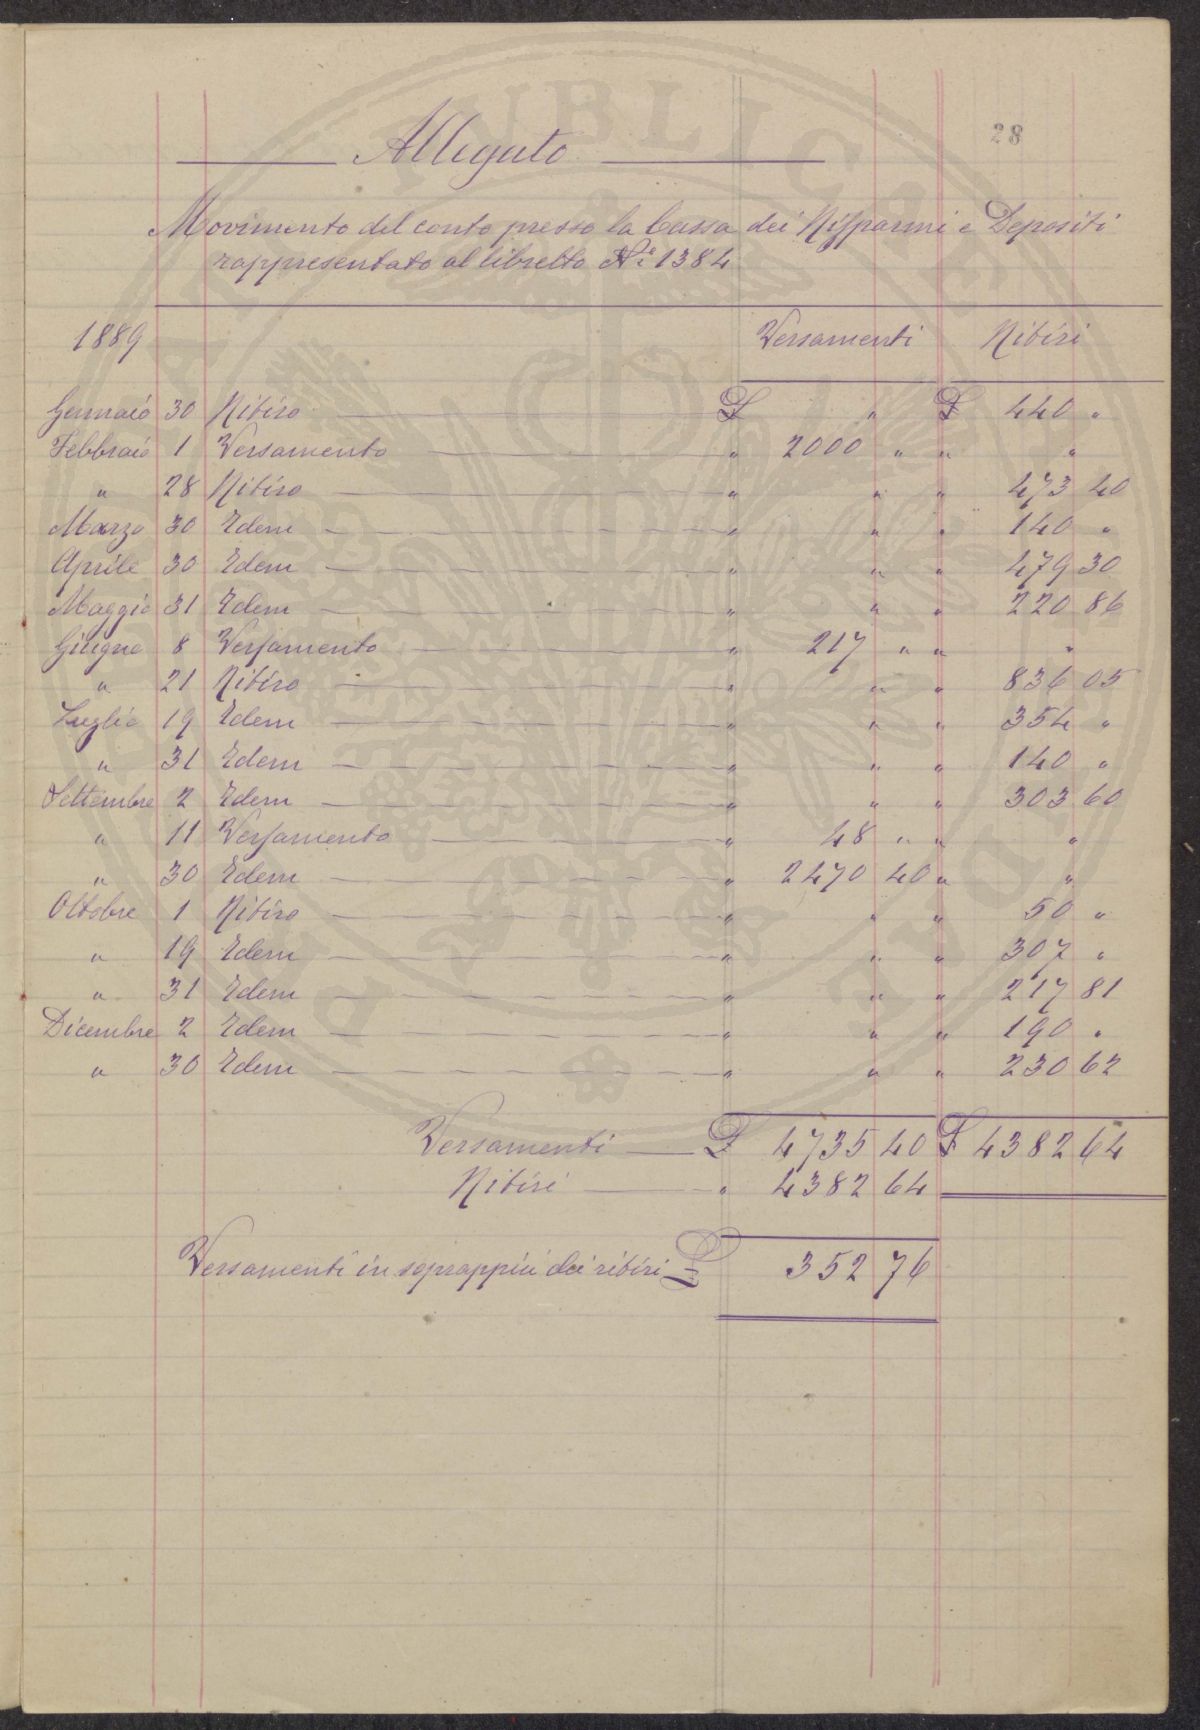 28
Allegato
Movimento del conto presso la Cassa dei Risparmi e Depositi
rappresentato al libretto Nº 1384
1889 Versamenti Ritiri
Gennaio 30 Ritiro £ " £ 440 "
Febbraio 1 Versamento " 2000 " " "
" 28 Ritiro " " " 473 40
Marzo 30 Idem " " " 140 "
Aprile 30 Idem " " " 479 30
Maggio 31 Idem " " " 220 86
Giugno 8 Versamento " 217 " " "
" 21 Ritiro " " " 836 05
Luglio 19 Idem " " " 354 "
" 31 Idem " " " 140 "
Settembre 2 Idem " " " 303 60
" 11 Versamento " 48 " " "
" 30 Idem " 2470 40 " "
Ottobre 1 Ritiro " " " 50 "
" 19 Idem " " " 307 "
" 31 Idem " " " 217 81
Dicembre 2 Idem " " " 190 "
" 30 Idem " " " 230 62
Versamenti £ 4735 40 £ 4382 64
Ritiri " 4382 64
Versamenti in soprappiù dei ritiri £ 352 76